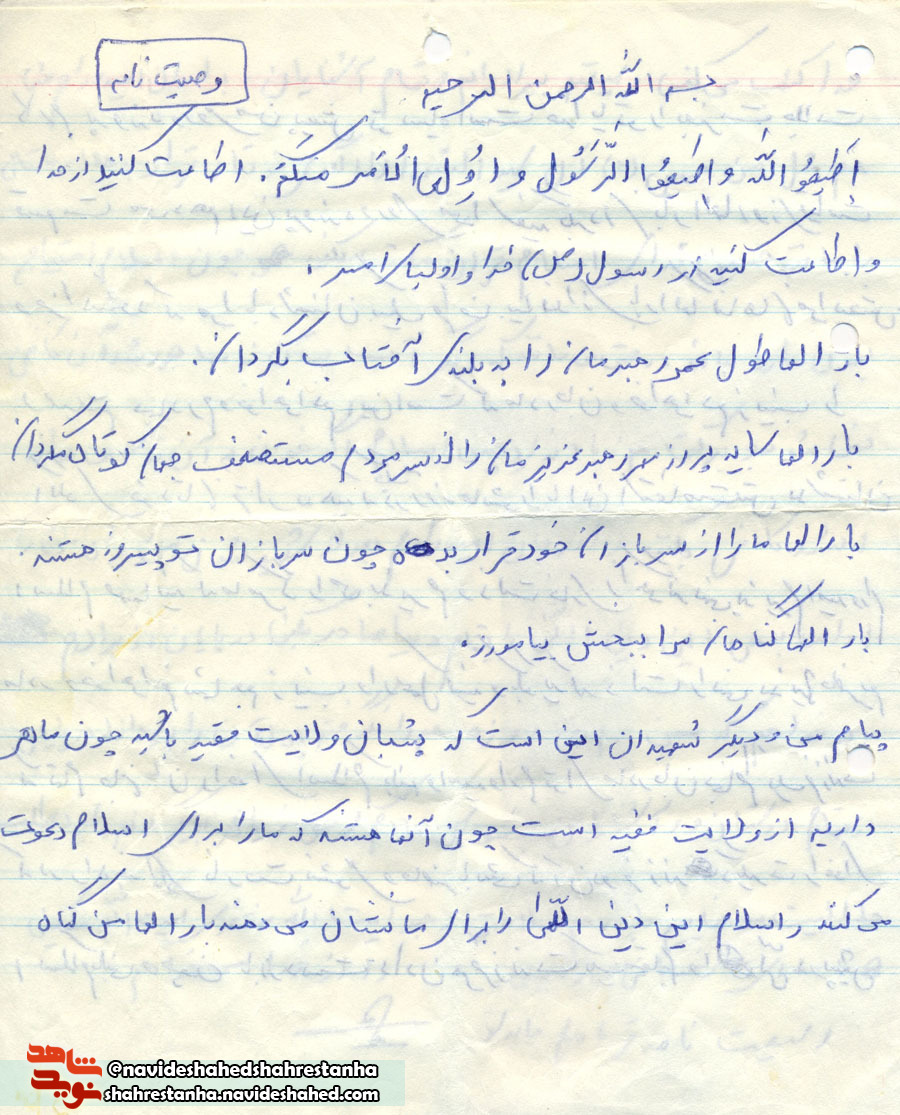 وصیت نامه
بسم الله الرحمن الرحیم
اَطیعُو اللّه وَ اطیعُوا الرَّسُول و اوُلِی الْاَمَر مِنکُمْ. اطاعت کنید از خدا
و اطاعت کنید از رسول (ص) خدا و اولیا
بار الها طول عمر رهبرمان را به بلندی آفتاب بگردان.
بار الها سایه پر از مهر رهبر عزیزمان را از سر مردم مستضعف جهان کوتاه مگردان
بارالها ما را از سربازان خود قرار بده چون سربازان تو پیروز هستند.
بار الها گناهان مرا ببخش بیامورز.
پیام من و دیگر شهیدان این است که پشبان ولایت فقیه باشید چون ما هر
داریم از ولایت فقیه است چون آنها هستند که ما را برای اسلام دعوت
می کنند و اسلام این دین الهی را برای ما نشان می دهند بار الها من گناه
شاهد
نوید
@navideshahedshahrestanha
shahrestanha.navideshahed.com